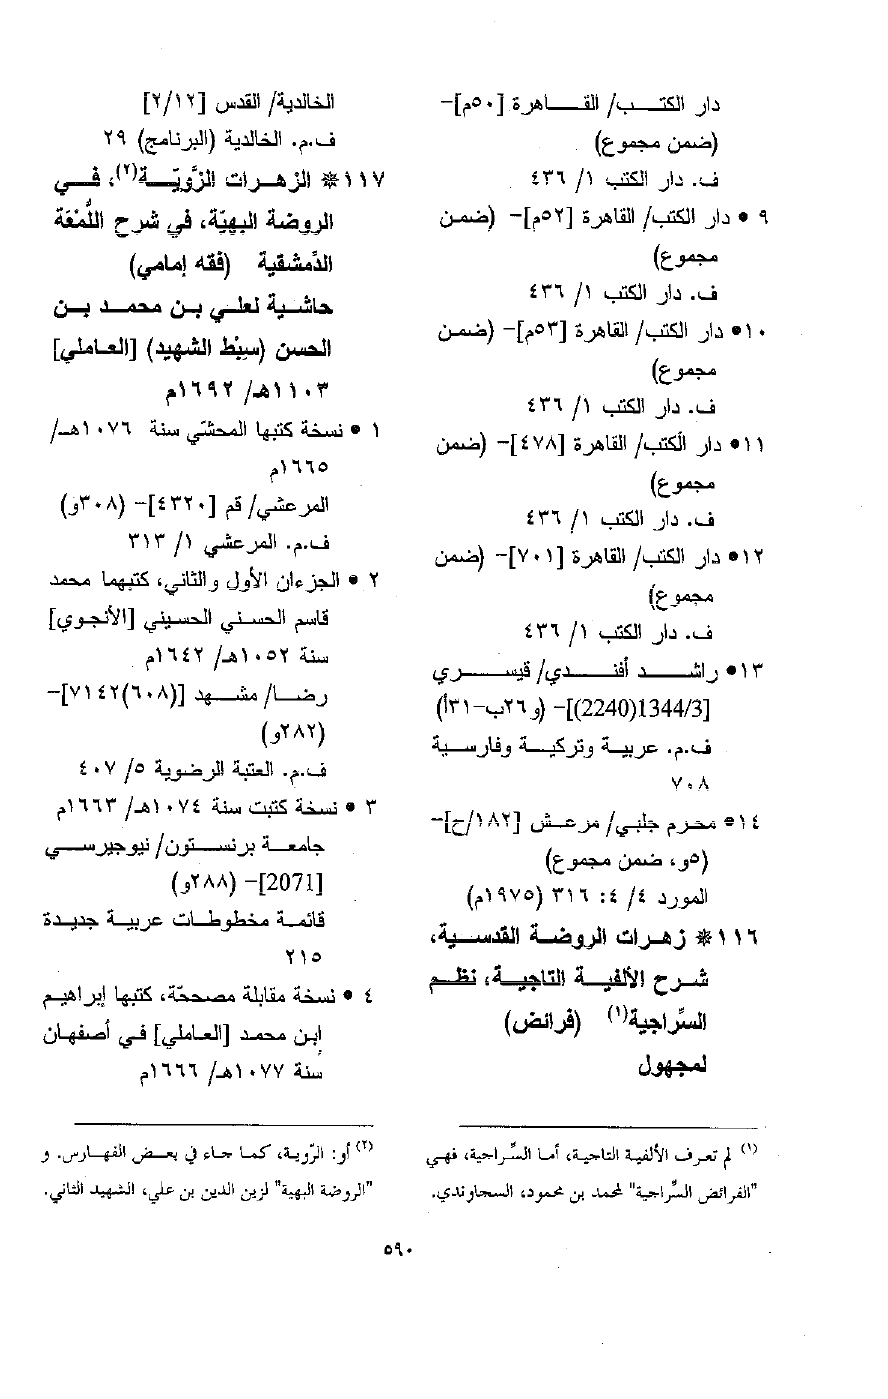 دار الكتب/ القاهرة [٥٠م]-
(ضمن مجموع)
ف. دار الكتب ١/ ٤٣٦
٩ • دار الكتب/ القاهرة [٥٢م]- (ضمن
مجموع)
ف. دار الكتب ١/ ٤٣٦
١٠• دار الكتب/ القاهرة [٥٣م]- (ضمن
مجموع)
ف. دار الكتب ١/ ٤٣٦
١١• دار الكتب/ القاهرة [٤٧٨]- (ضمن
مجموع)
ف. دار الكتب ١/ ٤٣٦
١٢• دار الكتب/ القاهرة [٧٠١]- (ضمن
مجموع)
ف. دار الكتب ١/ ٤٣٦
١٣• راشد أفندي/ قيسري
[1344/3(2240)]- (و٢٦ب-٣١أ)
ف.م. عربية وتركية وفارسية
٧٠٨
١٤• محرم جلبي/ مرعش [١٨٢/ح]-
(٥و، ضمن مجموع)
المورد ٤/ ٤: ٣١٦ (١٩٧٥م)
١١٦ * زهرات الروضة القدسية،
شرح الألفية التاجية، نظم
السِّراجية(١) (فرائض)
لمجهول
(١) لم تعرف الألفية التاجية، أما السِّراجية، فهي
"الفرائض السِّراجية" لمحمد بن محمود، السجاوندي.
الخالدية/ القدس [٢/١٢]
ف.م. الخالدية (البرنامج) ٢٩
١١٧ * الزهرات الزَّويّة(٢)، في
الروضة البهيّة، في شرح اللُّمْعَة
الدِّمشقية (فقه إمامي)
حاشية لعلي بن محمد بن
الحسن (سِبْط الشهيد) [العاملي]
١١٠٣هـ/ ١٦٩٢م
١ • نسخة كتبها المحشّي سنة ١٠٧٦هـ/
١٦٦٥م
المرعشي/ قم [٤٣٢٠]- (٣٠٨و)
ف.م. المرعشي ١/ ٣١٣
٢ • الجزءان الأول والثاني، كتبهما محمد
قاسم الحسني الحسيني [الأنجوي]
سنة ١٠٥٢هـ/ ١٦٤٢م
رضا/ مشهد [(٦٠٨)٧١٤٢]-
(٢٨٢و)
ف.م. العتبة الرضوية ٥/ ٤٠٧
٣ • نسخة كتبت سنة ١٠٧٤هـ/ ١٦٦٣م
جامعة برنستون/ نيوجيرسي
[2071]- (٢٨٨و)
قائمة مخطوطات عربية جديدة
٢١٥
٤ • نسخة مقابلة مصححّة، كتبها إبراهيم
ابن محمد [العاملي] في أصفهان
سنة ١٠٧٧هـ/ ١٦٦٦م
(٢) أو: الرّوية، كما جاء في بعض الفهارس. و
"الروضة البهية" لزين الدين بن علي، الشهيد الثاني.
٥٩٠